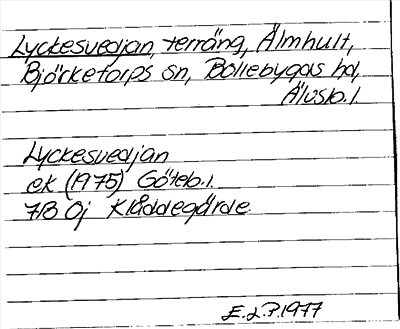 Lyckesvedjan, terräng, Älmhult,
Björketorps sn, Bollebygds hd,
Älvsb. l.
Lyckesvedjan
ek (1975) Göteb. l.
7B 0j Kläddegärde
E. L. P. 1977